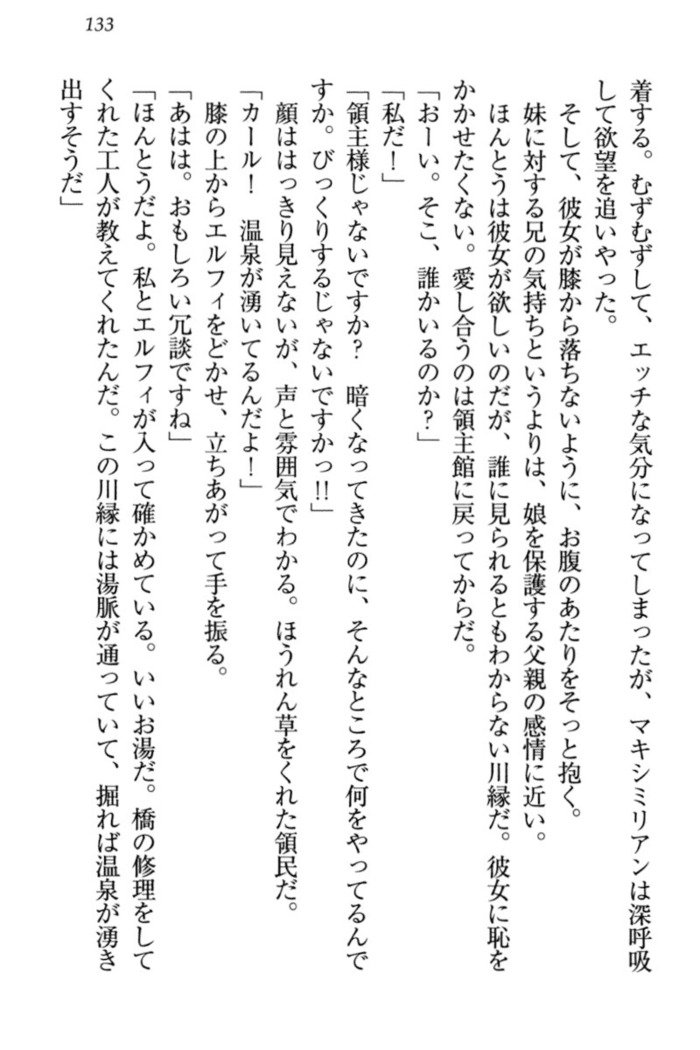 133
着する。むずむずして、エッチな気分になってしまったが、マキシミリアンは深呼吸
して欲望を追いやった。
そして、彼女が膝から落ちないように、お腹のあたりをそっと抱く。
妹に対する兄の気持ちというよりは、娘を保護する父親の感情に近い。
ほんとうは彼女が欲しいのだが、誰に見られるともわからない川縁だ。彼女に恥を
かかせたくない。愛し合うのは領主館に戻ってからだ。
「おーい。そこ、誰かいるのか?」
「私だ!」
「領主様じゃないですか? 暗くなってきたのに、そんなところで何をやってるんで
すか。びっくりするじゃないですかっ!!」
顔ははっきり見えないが、声と雰囲気でわかる。ほうれん草をくれた領民だ。
「カール! 温泉が湧いてるんだよ!」
膝の上からエルフィをどかせ、立ちあがって手を振る。
「あはは。おもしろい冗談ですね」
「ほんとうだよ。私とエルフィが入って確かめている。いいお湯だ。橋の修理をして
くれた工人が教えてくれたんだ。この川縁には湯脈が通っていて、掘れば温泉が湧き
出すそうだ」